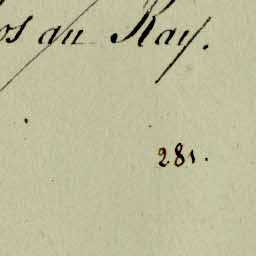 os au Ray.
281.